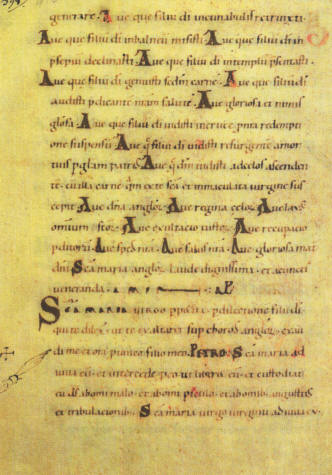 generare. Aue que filiu di incunabulis reruixti
Aue que filiu di inbalneu misisti. Aue que filiu di an
psepiu declinasti. Aue que filiu di intemplu psentasti.
Aue que filiu di genuisti sedm carne. Aue que filiu di
audisti pdicante mam salute. Aue gloriosa et nimis
glosa. Aue que filiu di uidisti incruce pnra redemp
one suspensu. Aue q filiu di uidisti resurgente amor
tuis pglam patris. Aue q dm uidisti adcelos ascenden
te. cuilla carne qm exte sca et inmaculata uirgine sus
cepit. Aue dna angloz. Aue regina celoz. Aue laus
omium scoz. Aue exultacio iustoz. Aue recupacio
pditoriz. Aue spes nra. Aue salus nra. Aue gloriosa mat
dni. Sca maria angloz laude dignissima. et a cunctis
ueneranda. amen
Sca maria uirgo ppetua. p dilectione filiu di
qui te dilexit. ut te exaltaret sup choros angloz. exau
di me et ora pio reo filio meo. PETRO. Sca maria ad
iuua eu. et intercede p eo ut liberet eu. et custodiat
eu ds abomi malo. et abomi pclo. et abomib. angustiis
et tribulacionib. Sca maria uirgo uirginu adiuua eu.